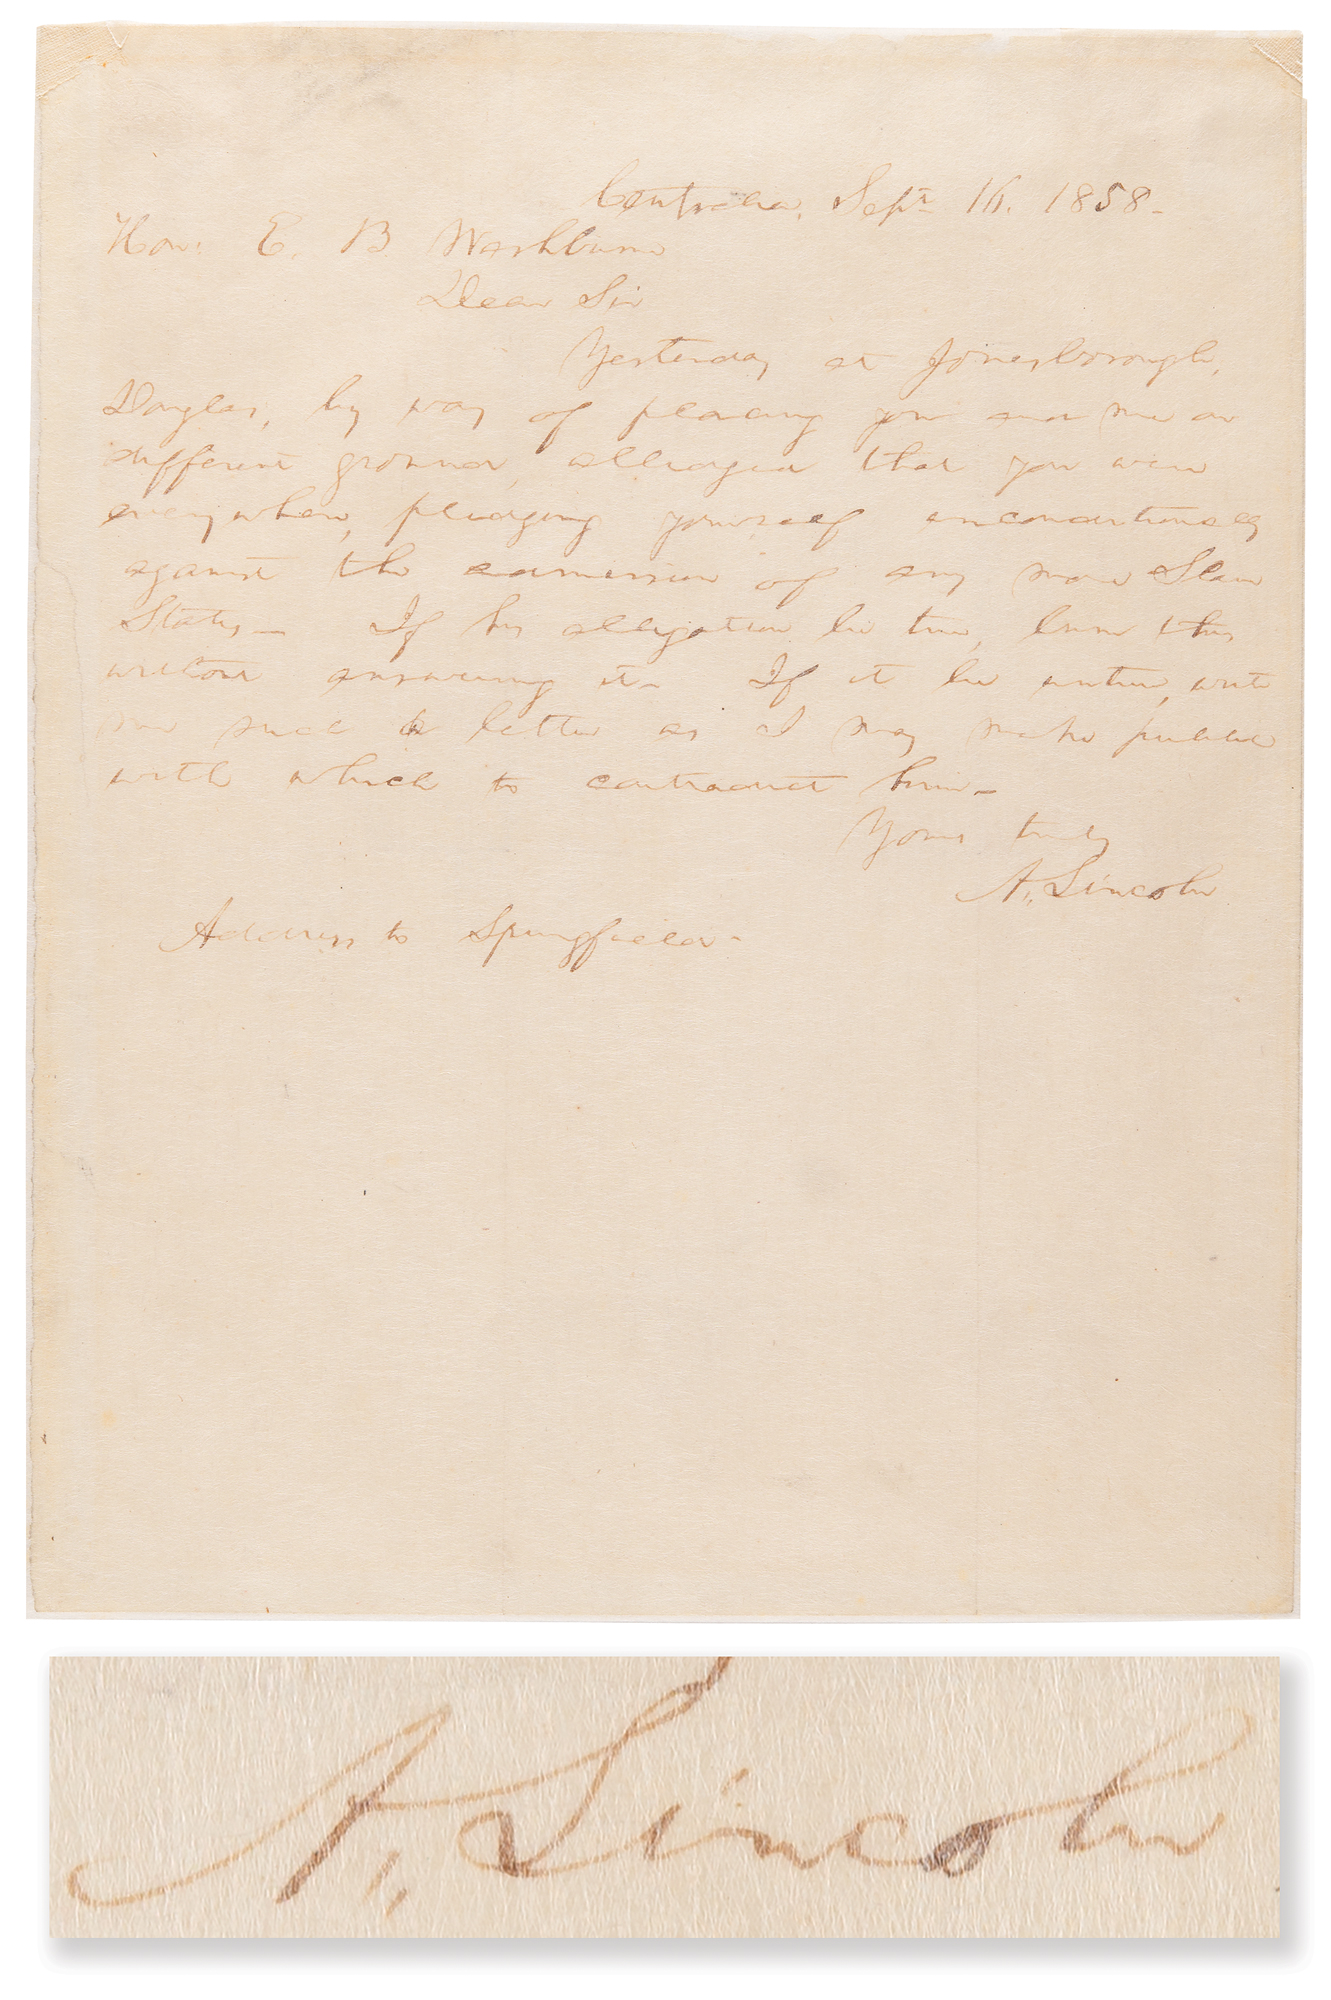 Centralia, Sept. 16. 1858-
Hon: E. B Washburne
Dear Sir
Yesterday at Jonesborough,
Douglas, by way of placing you and me on
different ground, alledged that you were
everywhere, pledging yourself unconditionally
against the admission of any more Slave
States- If his allegation be true, burn this
without answering it- If it be untrue, write
me such a letter as I may make public
with which to contradict him-
Yours truly
A. Lincoln
Address to Springfield-
A. Lincoln